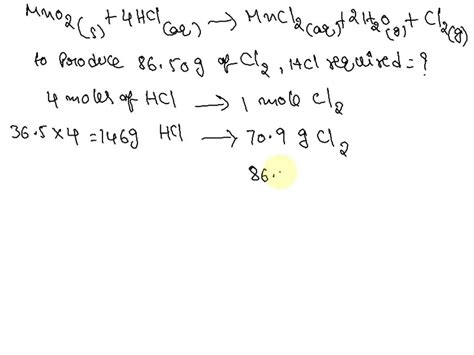 MnO2(s) + 4HCl(aq) → MnCl2(aq) + 2H2O(l) + Cl2(g)
to produce 86.50g of Cl2, HCl required = ?
4 moles of HCl → 1 mole Cl2
36.5 x 4 = 146g HCl → 70.9 g Cl2
86.